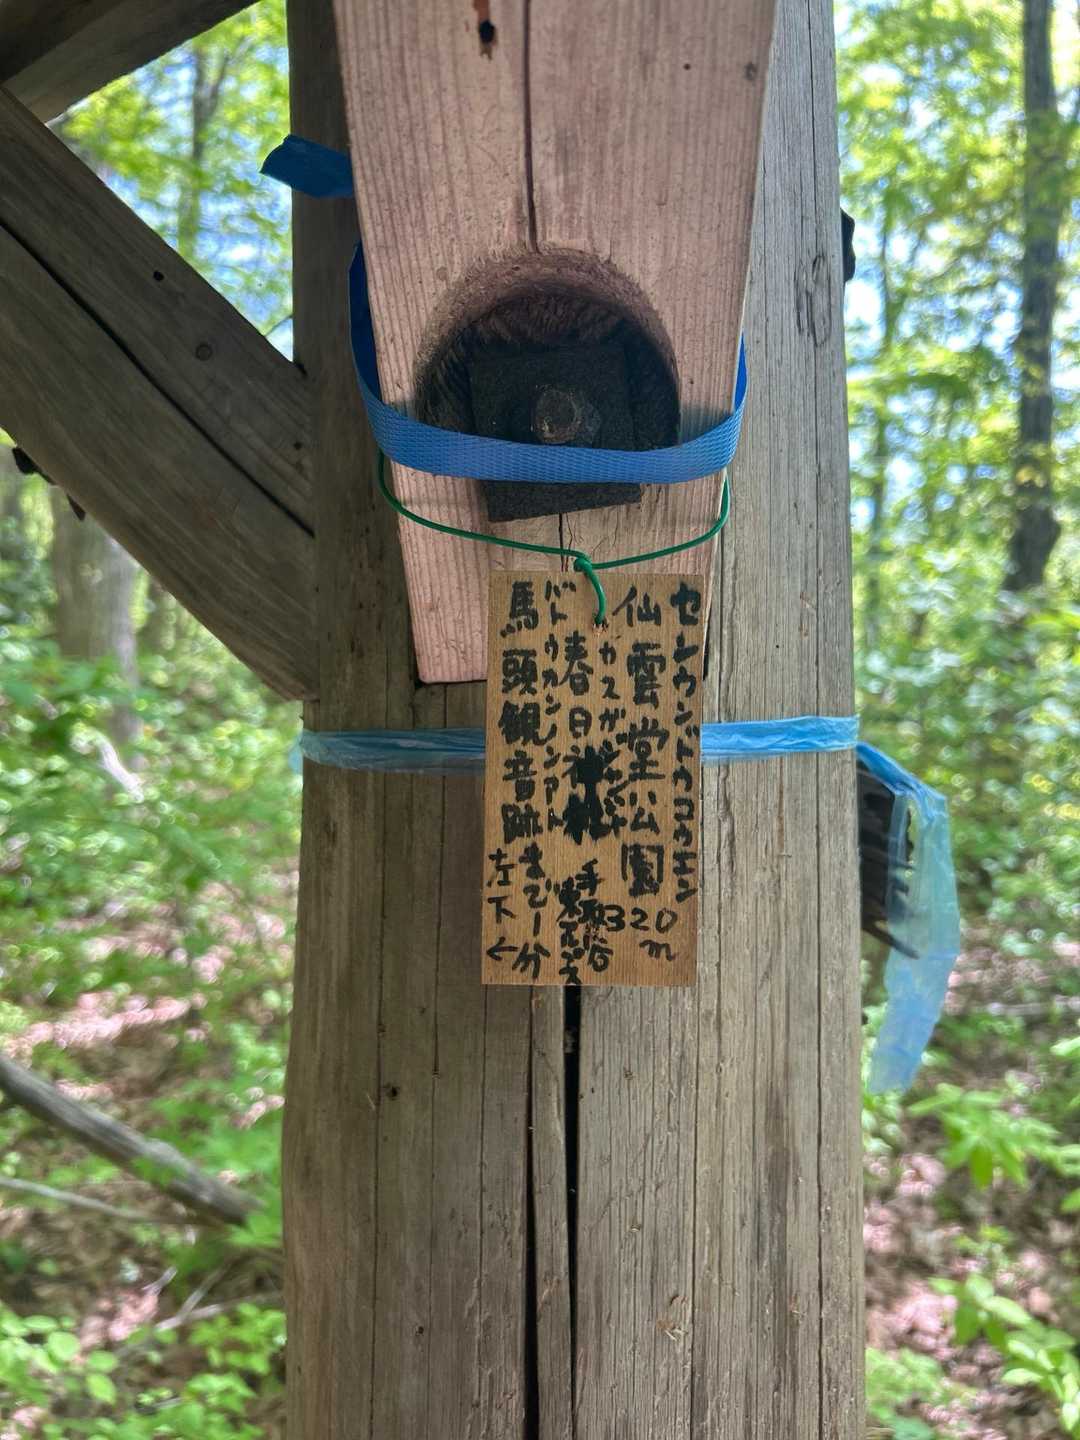 センウンドウコウエン
仙雲堂公園 320m
カスガ
春日神社 手取谷
バトウカンノンアト
馬頭観音跡まで一分
左下←